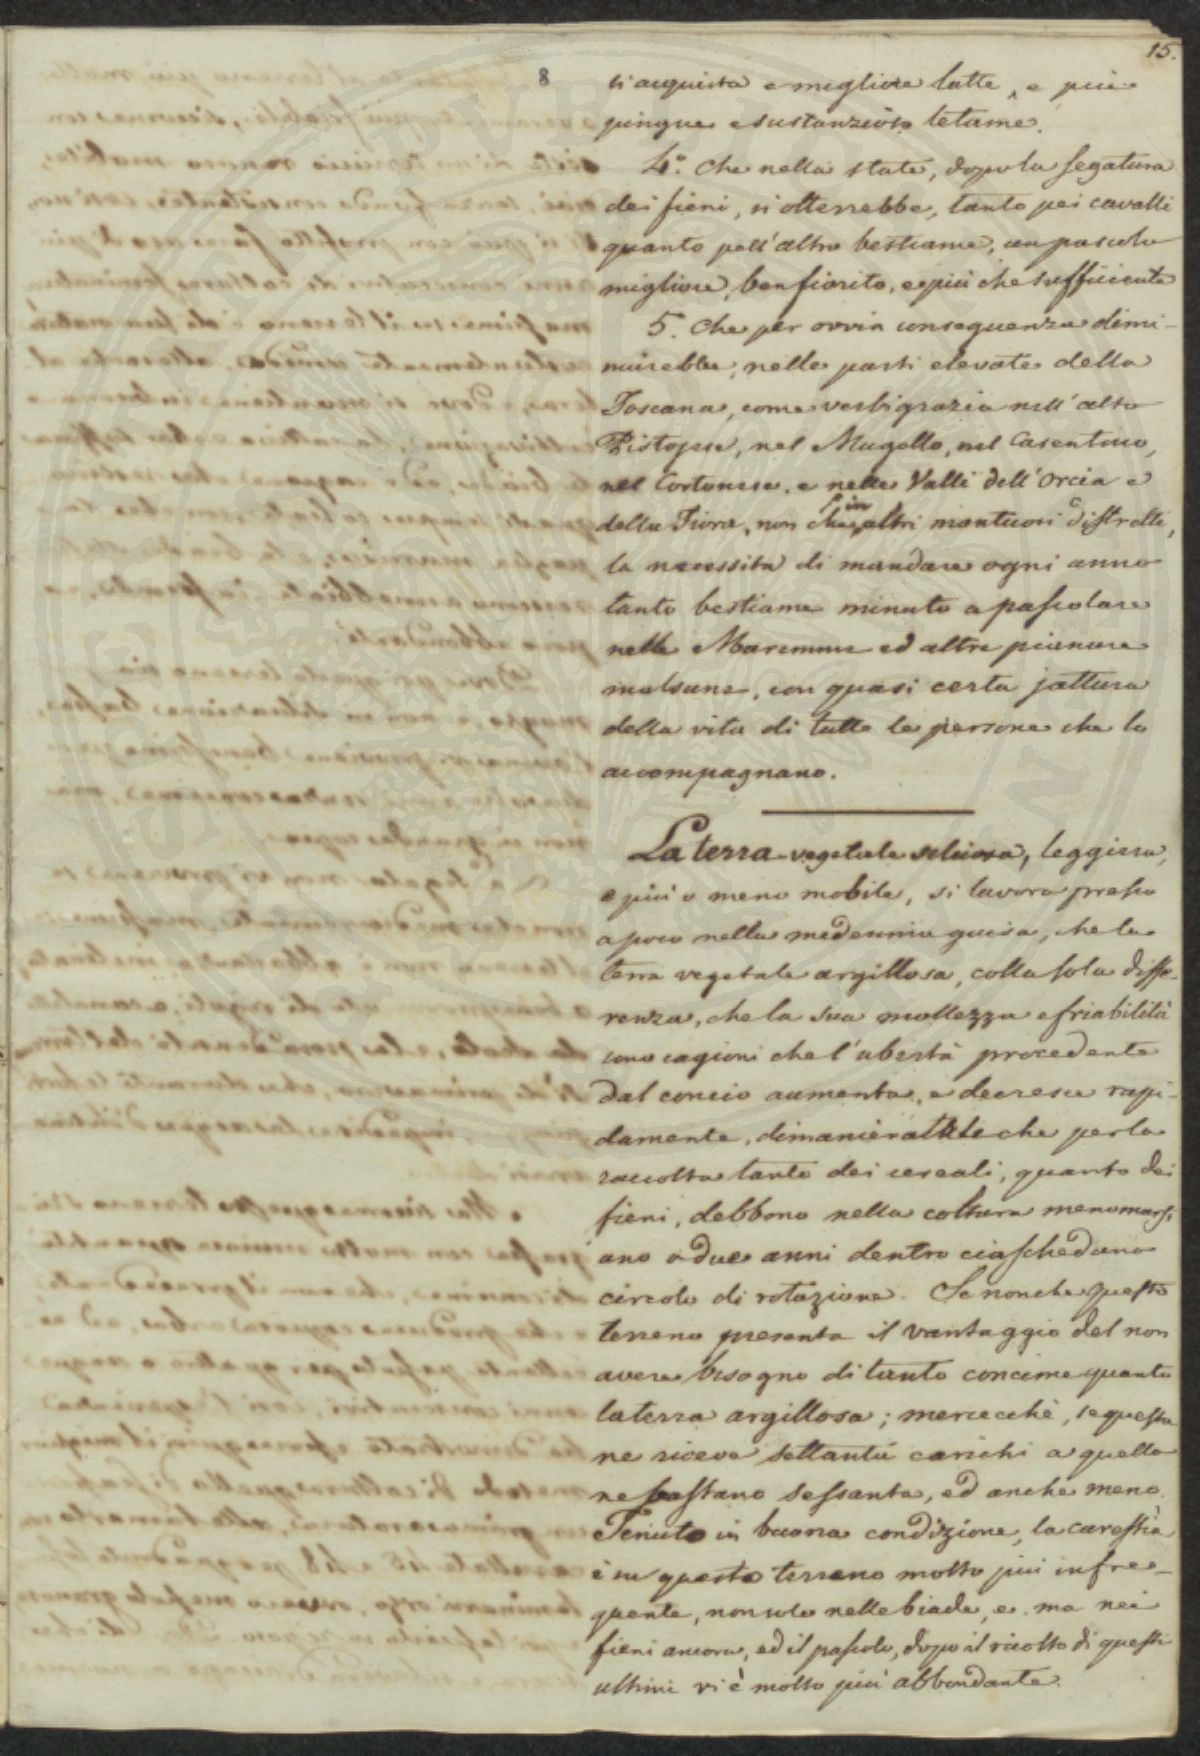 15.
8
si acquista e migliore latte, e più
pingue e sustanzioso letame.
4.° Che nella state, dopo la segatura
dei fieni, si otterrebbe, tanto pei cavalli
quanto pell'altro bestiame, un pascolo
migliore, ben fiorito, e più che sufficiente
5. Che per ovvia conseguenza dimi-
nuirebbe, nelle parti elevate della
Toscana, come verbigrazia nell'alto
Pistojese, nel Mugello, nel Casentino,
nel Cortonese, e nelle Valli dell'Orcia e
della Fiora, non che in altri montuosi distretti,
la necessita di mandare ogni anno
tanto bestiame minuto a pascolare
nelle Maremme ed altre pianure
malsane, con quasi certa jattura
della vita di tutte le persone che lo
accompagnano.
La terra vegetale siliciosa, leggiera,
e più o meno mobile, si lavora presso
a poco nella medesima guisa, che la
terra vegetale argillosa, colla sola diffe-
renza, che la sua mollezza e friabilità
sono cagioni che l'ubertà procedente
dal concio aumenta, e decresce rapi-
damente, dimanieratale che per la
raccolta tanto dei cereali, quanto dei
fieni, debbono nella coltura menomarsi
uno o due anni dentro ciascheduno
circolo di rotazione. Se non che questo
terreno presenta il vantaggio del non
avere bisogno di tanto concime quanto
la terra argillosa; mercecchè, se questa
ne riceve settanta carichi a quello
ne bastano sessanta, ed anche meno.
Tenuto in buona condizione, la carestia
è su questo terreno molto più infre-
quente, non solo nelle biade, e ma nei
fieni ancora, ed il pascolo, dopo il ricolto di questi
ultimi vi è molto più abbondante.